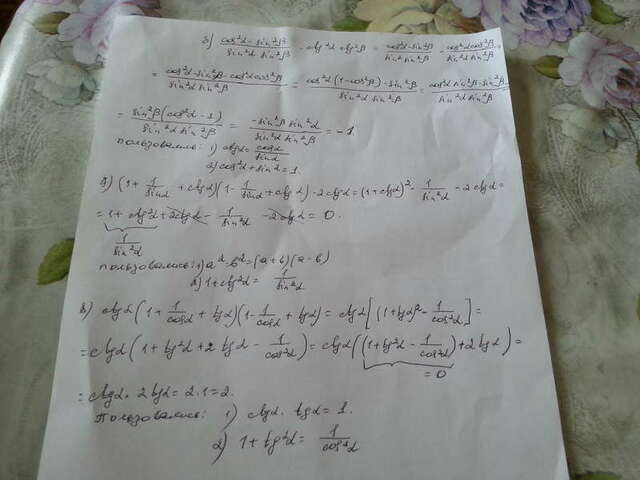 б) (cos²α - sin²β)/(sin²α sin²β) - ctg²α ctg²β = (cos²α - sin²β)/(sin²α sin²β) - (cos²α cos²β)/(sin²α sin²β) =
= (cos²α - sin²β - cos²α cos²β)/(sin²α sin²β) = (cos²α(1 - cos²β) - sin²β)/(sin²α sin²β) = (cos²α sin²β - sin²β)/(sin²α sin²β)
= (sin²β(cos²α - 1))/(sin²α sin²β) = (-sin²β sin²α)/(sin²α sin²β) = -1.
пользовались: 1) ctgα = cosα/sinα
2) cos²α + sin² = 1.
(1 + 1/sinα + ctgα)(1 - 1/sinα + ctgα) - 2ctgα = (1 + ctgα)² - 1/sin²α - 2ctgα =
= 1 + ctg²α + 2ctgα - 1/sin²α - 2ctgα = 0.
1/sin²α
пользовались: 1) a² - b² = (a + b)(a - b)
2) 1 + ctg²α = 1/sin²α
в) ctgα(1 + 1/cosα + tgα)(1 - 1/cosα + tgα) = ctgα[(1 + tgα)² - 1/cos²α] =
= ctgα(1 + tg²α + 2tgα - 1/cos²α) = ctgα((1 + tg²α - 1/cos²α) + 2tgα) =
= 0
= ctgα · 2tgα = 2·1 = 2.
Пользовались: 1) ctgα · tgα = 1.
2) 1 + tg²α = 1/cos²α